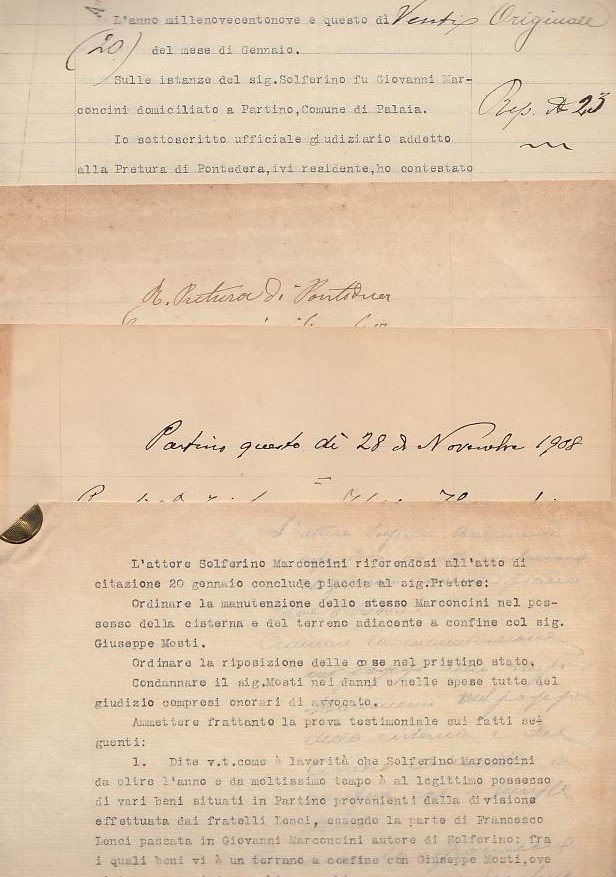 L'anno millenovecentonove e questo dì Venti Originale
(20) del mese di Gennaio.
Sulle istanze del sig.Solferino fu Giovanni Mar-
concini domiciliato a Partino,Comune di Palaia.
Rep. 23
Io sottoscritto ufficiale giudiziario addetto
alla Pretura di Pontedera,ivi residente,ho contestato
R. Pretura di Pontedera
Partino questo dì 28 di Novembre 1908
L'attore Solferino Marconcini riferendosi all'atto di
citazione 20 gennaio conclude piaccia al sig.Pretore:
Ordinare la manutenzione dello stesso Marconcini nel pos-
sesso della cisterna e del terreno adiacente a confine col sig.
Giuseppe Mosti.
Ordinare la riposizione delle cose nel pristino stato.
Condannare il sig.Mosti nei danni e nelle spese tutte del
giudizio compresi onorari di avvocato.
Ammettere frattanto la prova testimoniale sui fatti se-
guenti:
1. Dite v.t.come è laverità che Solferino Marconcini
da oltre l'anno e da moltissimo tempo è al legittimo possesso
di vari beni situati in Partino provenienti dalla divisione
effettuata dai fratelli Lenci, essendo la parte di Francesco
Lenci passata in Giovanni Marconcini autore di Solferino; fra
i quali beni vi è un terreno a confine con Giuseppe Mosti,ove